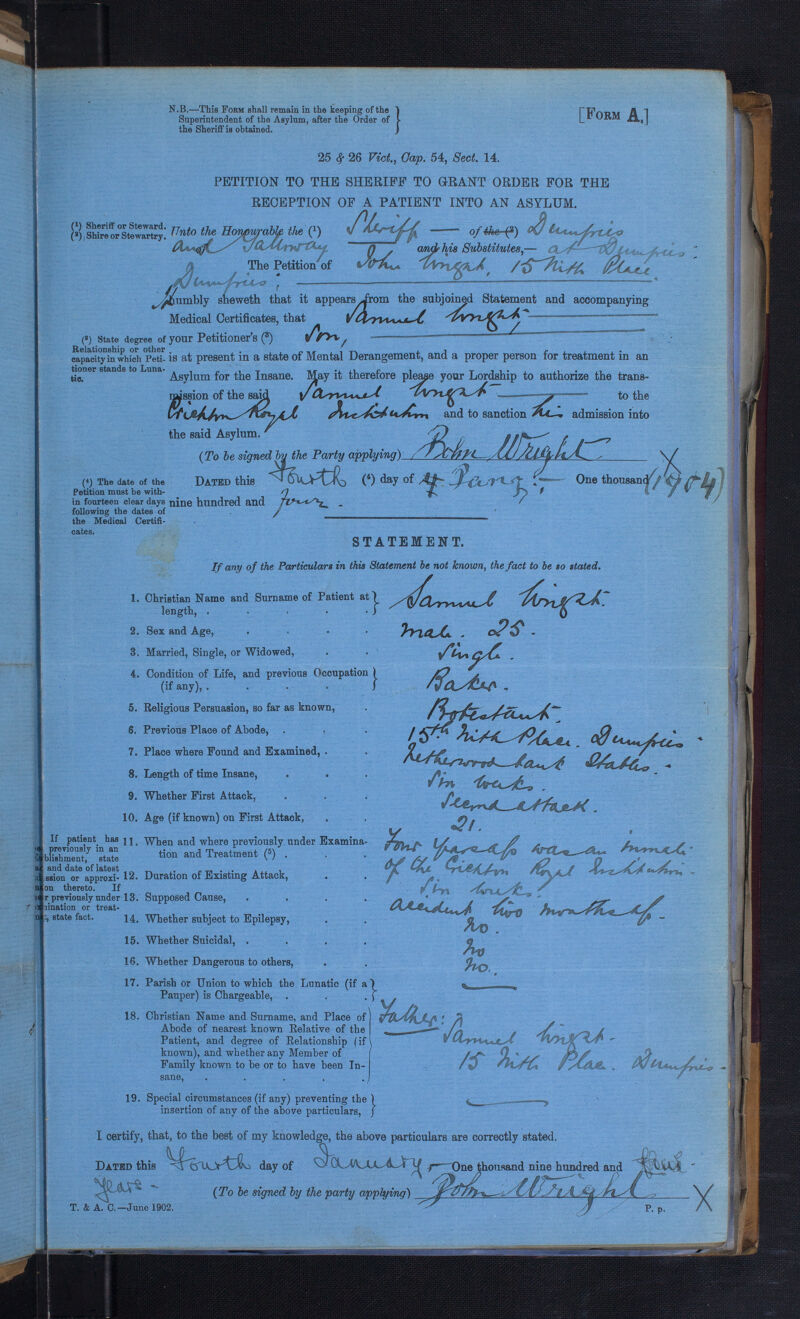 N.B.—This Form shall remain in the keeping of the
Superintendent of the Asylum, after the Order of
the Sheriff is obtained.
[Form A.]
25 & 26 Vict., Cap. 54, Sect. 14.
PETITION TO THE SHERIFF TO GRANT ORDER FOR THE
RECEPTION OF A PATIENT INTO AN ASYLUM.
(1) Sheriff or Steward.
(2) Shire or Stewartry.
Unto the Honourable the (1) Sheriff — of the (2) Dumfries
and Galloway and his Substitutes,— at Dumfries.
The Petition of John Wright, 15 Nith Place
Dumfries;
Humbly sheweth that it appears from the subjoined Statement and accompanying
Medical Certificates, that Samuel Wright,
(3) State degree of
Relationship or other
capacity in which Peti-
tioner stands to Luna-
tic.
your Petitioner's (3) Son,
is at present in a state of Mental Derangement, and a proper person for treatment in an
Asylum for the Insane. May it therefore please your Lordship to authorize the trans-
mission of the said Samuel Wright to the
Crichton Royal Institution and to sanction his admission into
the said Asylum.
(To be signed by the Party applying) John Wright X
(4) The date of the
Petition must be with-
in fourteen clear days
following the dates of
the Medical Certifi-
cates.
Dated this Fourth (4) day of Jany:— One thousand (1904)
nine hundred and four
STATEMENT.
If any of the Particulars in this Statement be not known, the fact to be so stated.
1. Christian Name and Surname of Patient at
length, . Samuel Wright.
2. Sex and Age, Male. 25.
3. Married, Single, or Widowed, Single.
4. Condition of Life, and previous Occupation
(if any), . Baker.
5. Religious Persuasion, so far as known, Protestant.
6. Previous Place of Abode, . 15th Nith Place. Dumfries.
7. Place where Found and Examined, . Netherwood bank Stables.
8. Length of time Insane, Six weeks.
9. Whether First Attack, Second attack.
10. Age (if known) on First Attack, 21.
If patient has
previously in an
blishment, state
and date of latest
ssion or approxi-
on thereto. If
r previously under
ination or treat-
, state fact.
11. When and where previously under Examina-
tion and Treatment (5) . Four years ago was an inmate
of the Crichton Royal Institution.
12. Duration of Existing Attack, Six weeks.
13. Supposed Cause, Accident two months ago.
14. Whether subject to Epilepsy, No.
15. Whether Suicidal, . No
16. Whether Dangerous to others, No.
17. Parish or Union to which the Lunatic (if a
Pauper) is Chargeable, .
18. Christian Name and Surname, and Place of
Abode of nearest known Relative of the
Patient, and degree of Relationship (if
known), and whether any Member of
Family known to be or to have been In-
sane,
Father:
Samuel Wright.
15 Nith Place. Dumfries.
19. Special circumstances (if any) preventing the
insertion of any of the above particulars,
I certify, that, to the best of my knowledge, the above particulars are correctly stated.
Dated this Fourth day of January One thousand nine hundred and four
Years
(To be signed by the party applying) John Wright X
T. & A. C.—June 1902.
P. p.